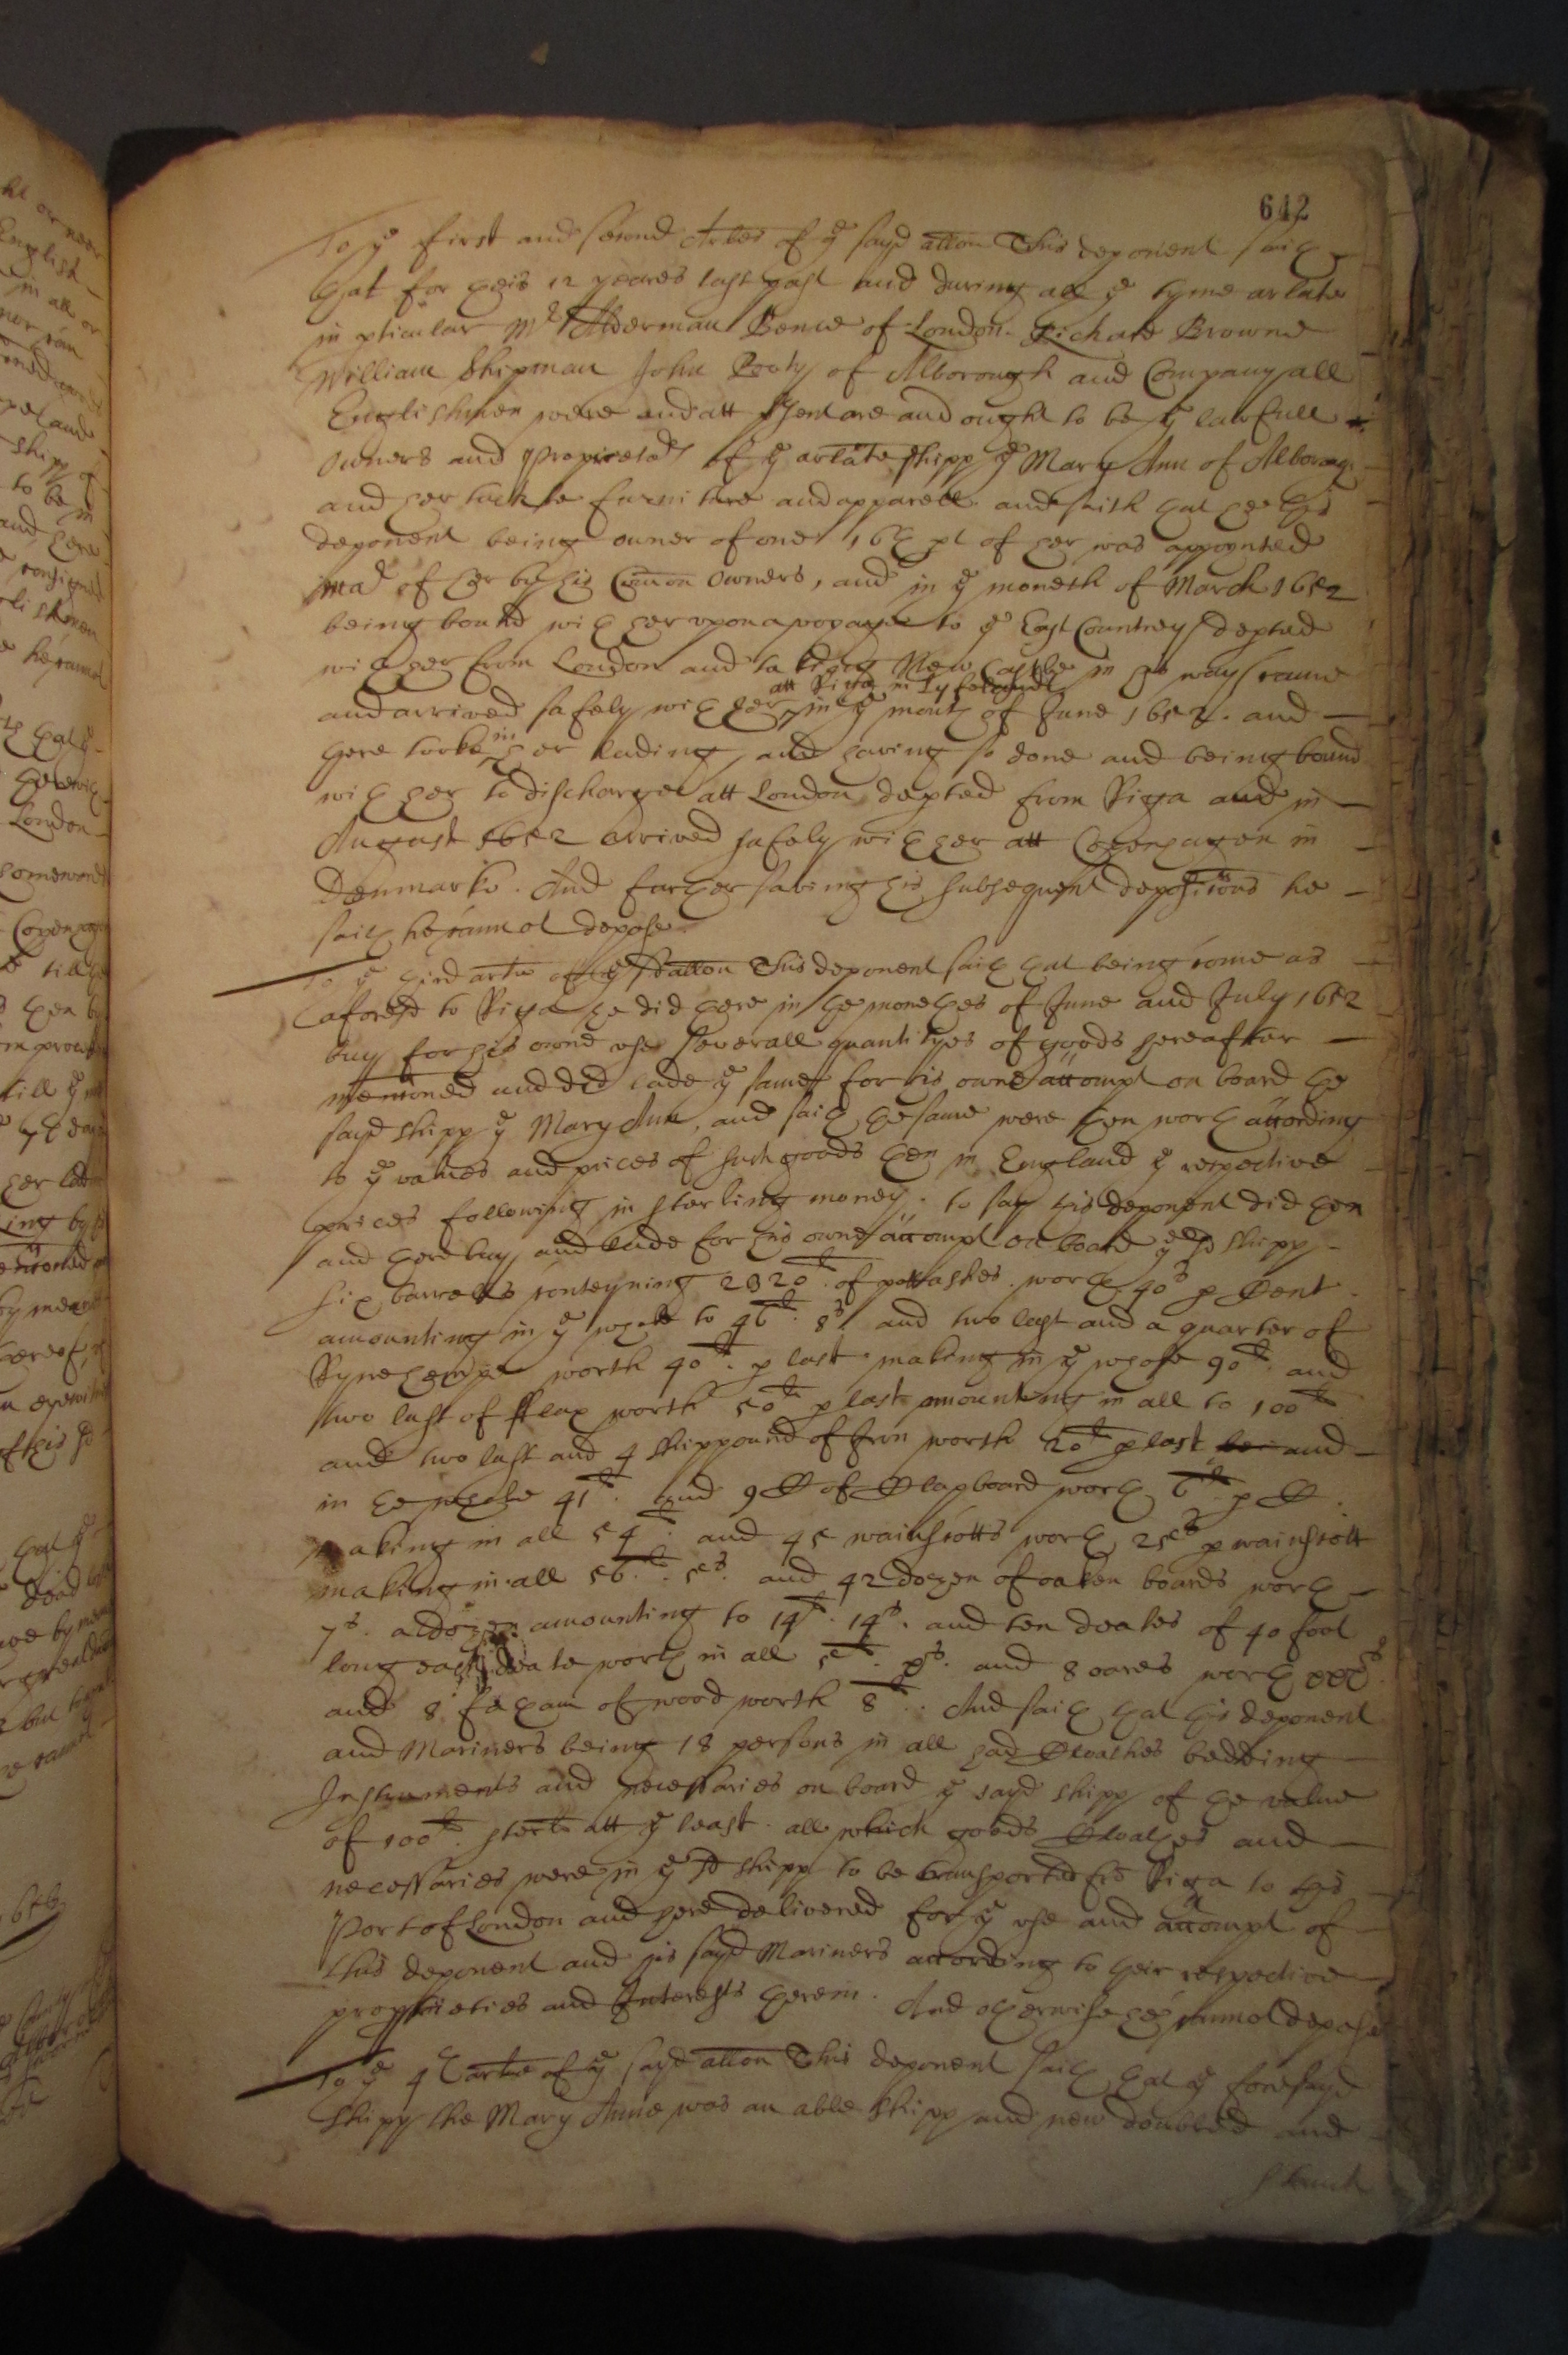 642
To ye first and second Arles of ye sayd allon This deponent saith
that for theis 12 yeares last past and during all ye tyme arlate
in pticular Mr Alderman Bence of London Richard Browne
William Shipman John Pooty of Alborough and Company all
Englishmen were and att psent are and ought to be ye lawfull
Owners and Proprietors of ye arlate shipp ye Mary Ann of Alborough
and her tackle furniture and apparell. and saith that hee this
deponent being owner of one 16th pt of her was appoynted
mar of her by his Comon Owners, and in ye moneth of March 1652
being bound with her vpon a voyage to ye East Countrey depted
with her from London and taking New Castle in his way came
and arrived safely with her att Riga in Lyfeland in ye month of June 1652. and
there tooke in her lading, and having so done and being bound
with her to discharge att London depted from Riga and in
August 1652 arrived safely with her att Copenhagen in
Denmarke. And further saving his subsequent depositions he
saith he cannot depose.
To ye third artle of ye sd allon This deponent saith that being come as
aforesd to Riga he did there in the monethes of June and July 1652
buy for his owne vse severall quantityes of goods hereafter
mentioned and did lade ye same for his owne accompt on board the
sayd shipp ye Mary Ann, and saith the same were then worth according
to ye values and prices of such goods then in England ye respective
prices following in sterling money. to say this deponent did then
and there buy and lade for his owne accompt on board ye sd shipp
six barrells conteyning 2320 li of pottashes worth 40s p Cent.
amounting in ye whole to 46li. 8s. and two last and a quarter of
Ryne hempe worth 40li. p last making in ye whole 90li. and
two last of fflax worth 50li p last amounting in all to 100li
and two last and 4 shippound of Iron worth 20li p last and
in the whole 41li. and 9 C of Clapboard worth 6li p C.
making in all 54li. and 45 wainscotts worth 25s p wainscott
making in all 56li. 5s. and 42 dozen of oaken boards worth
7s. a dozen amounting to 14li. 14s. and ten deales of 40 foot
long each deale worth in all 5li. xs. and 8 oares worth xxxs
and 8 fatham of wood worth 8li. And saith that this deponent
and Mariners being 18 persons in all had Cloathes bedding
Instruments and necessaries on board ye sayd shipp of the value
of 100li. sterl att ye least. all which goods Cloathes and
necessaries were in ye sd shipp to be transported fro Riga to this
Port of London and here delivered for ye vse and accompt of
this deponent and his sayd Mariners according to their respective
proprieties and Interests therein. And otherwise he cannot depose
To ye 4th artle of ye sayd allon This deponent saith that ye foresayd
shipp the Mary Anne was an able shipp and new doubled and
staunch